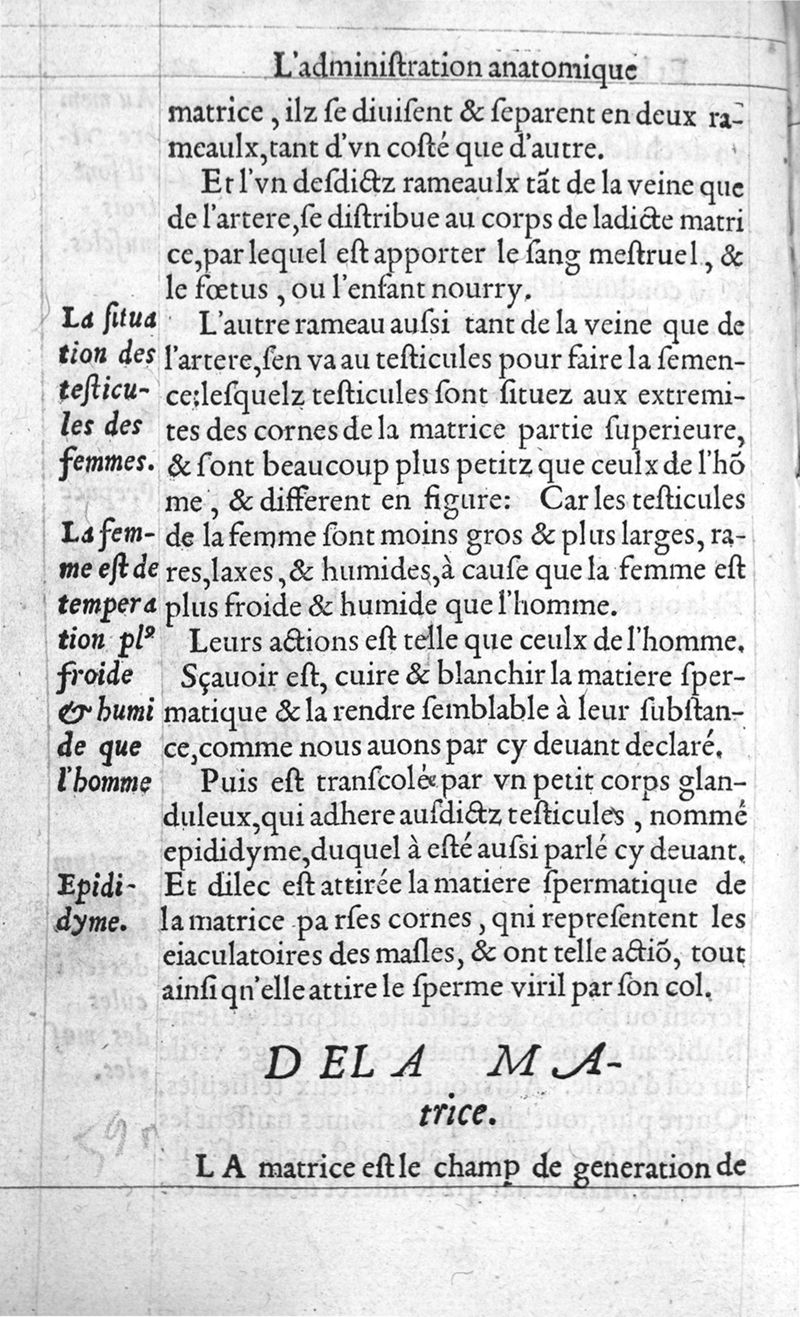 L'adminiſtration anatomique
matrice, ilz ſe diuiſent & ſeparent en deux ra-
meaulx, tant d'vn coſté que d'autre.
Et l'vn deſdictz rameaulx tāt de la veine que
de l'artere, ſe diſtribue au corps de ladicte matri
ce, par lequel eſt apporter le ſang meſtruel, &
le fœtus, ou l'enfant nourry.
L'autre rameau auſsi tant de la veine que de
l'artere, ſen va au teſticules pour faire la ſemen-
ce; leſquelz teſticules ſont ſituez aux extremi-
tes des cornes de la matrice partie ſuperieure,
& ſont beaucoup plus petitz que ceulx de l'hō
me, & different en figure: Car les teſticules
de la femme ſont moins gros & plus larges, ra-
res, laxes, & humides, à cauſe que la femme eſt
plus froide & humide que l'homme.
Leurs actions eſt telle que ceulx de l'homme.
Sçauoir eſt, cuire & blanchir la matiere ſper-
matique & la rendre ſemblable à leur ſubſtan-
ce, comme nous auons par cy deuant declaré.
Puis eſt tranſcolée par vn petit corps glan-
duleux, qui adhere auſdictz teſticules, nommé
epididyme, duquel à eſté auſsi parlé cy deuant.
Et dilec eſt attirée la matiere ſpermatique de
la matrice pa rſes cornes, qni repreſentent les
eiaculatoires des maſles, & ont telle actiō, tout
ainſi qn'elle attire le ſperme viril par ſon col.
DE LA MA-
trice.
LA matrice eſt le champ de generation de
La ſitua
tion des
teſticu-
les des
femmes.
La fem-
me eſt de
tempera
tion plꝰ
froide
& humi
de que
l'homme
Epidi-
dyme.